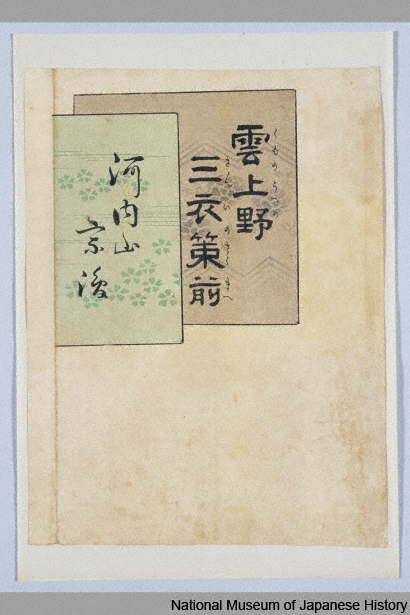 雲上野
くものうへの
三衣策前
河内山
宗俊
National Museum of Japanese History